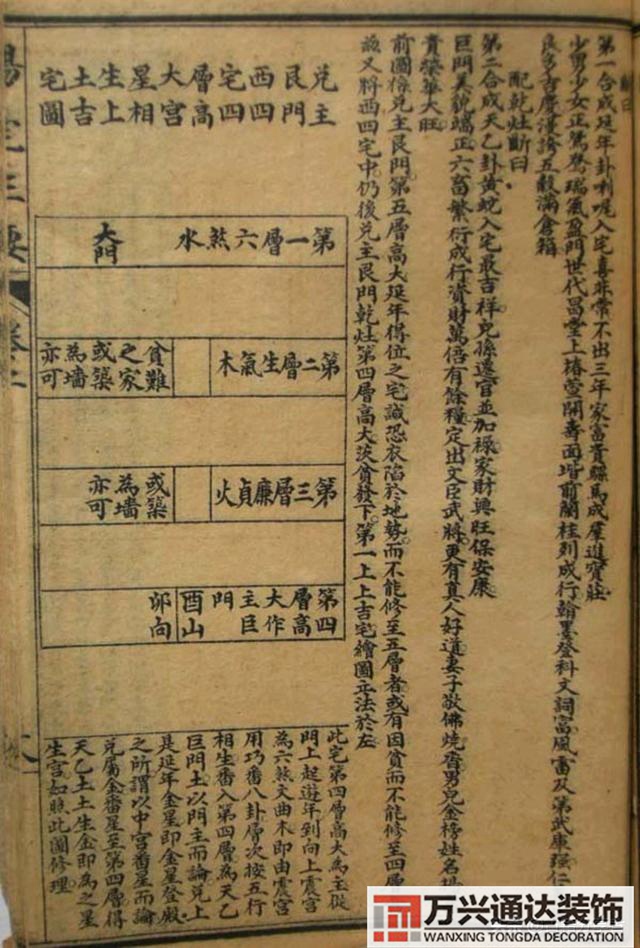 第一合成延年卦唎呢入宅喜非常不出三年家富貴騾馬成羣進寶莊
少男少女正鴛鴦瑞氣盈門世代昌堂上椿萱開壽面堦前蘭桂列成行翰墨登科文詞富風雷及第武庫强仁
良多吉慶漫誇五穀滿倉箱
配乾灶斷曰
第二合成天乙卦黄蛇入宅最吉祥兒孫遷官並加禄家財興旺保安康
巨門美貌端正六畜繁衍成行資財萬倍有餘糧定出文臣武將更有真人好道妻子敬佛燒香男兒金榜姓名揚
貴榮華大旺
前圖像兌主艮門第五層高大延年得位之宅誠恐衣陷於地勢而不能修至五層者或有因貧而不能修至四層
故又將西四宅中仍後兌主艮門乾灶第四層高大茨貧發下第一上上吉宅繪圖立法於左
兌主
艮門
西四
宅四
層高
大宮
星相
生上
土吉
宅圖
第一層六煞水
大門
第二層生氣木
貧難之家或築為墻亦可
第三層廉貞火
或築為墻亦可
第四層高大作主巨門
酉山
卯向
此宅第四層高大為主從
門上起遊年到向上震宮
為六煞文曲木即由震宮
用巧番八卦層次按五行
相生番入第四層為天乙
巨門土以門主而論兌上
是延年金星即金星登殿
之所謂以中宮番星而論
兌屬金番星至第四層得
天乙土土生金即為之星
生宮如照此圖修理
陽宅三要
卷二
万兴通达装饰
WANXING TONGDA DECORATION